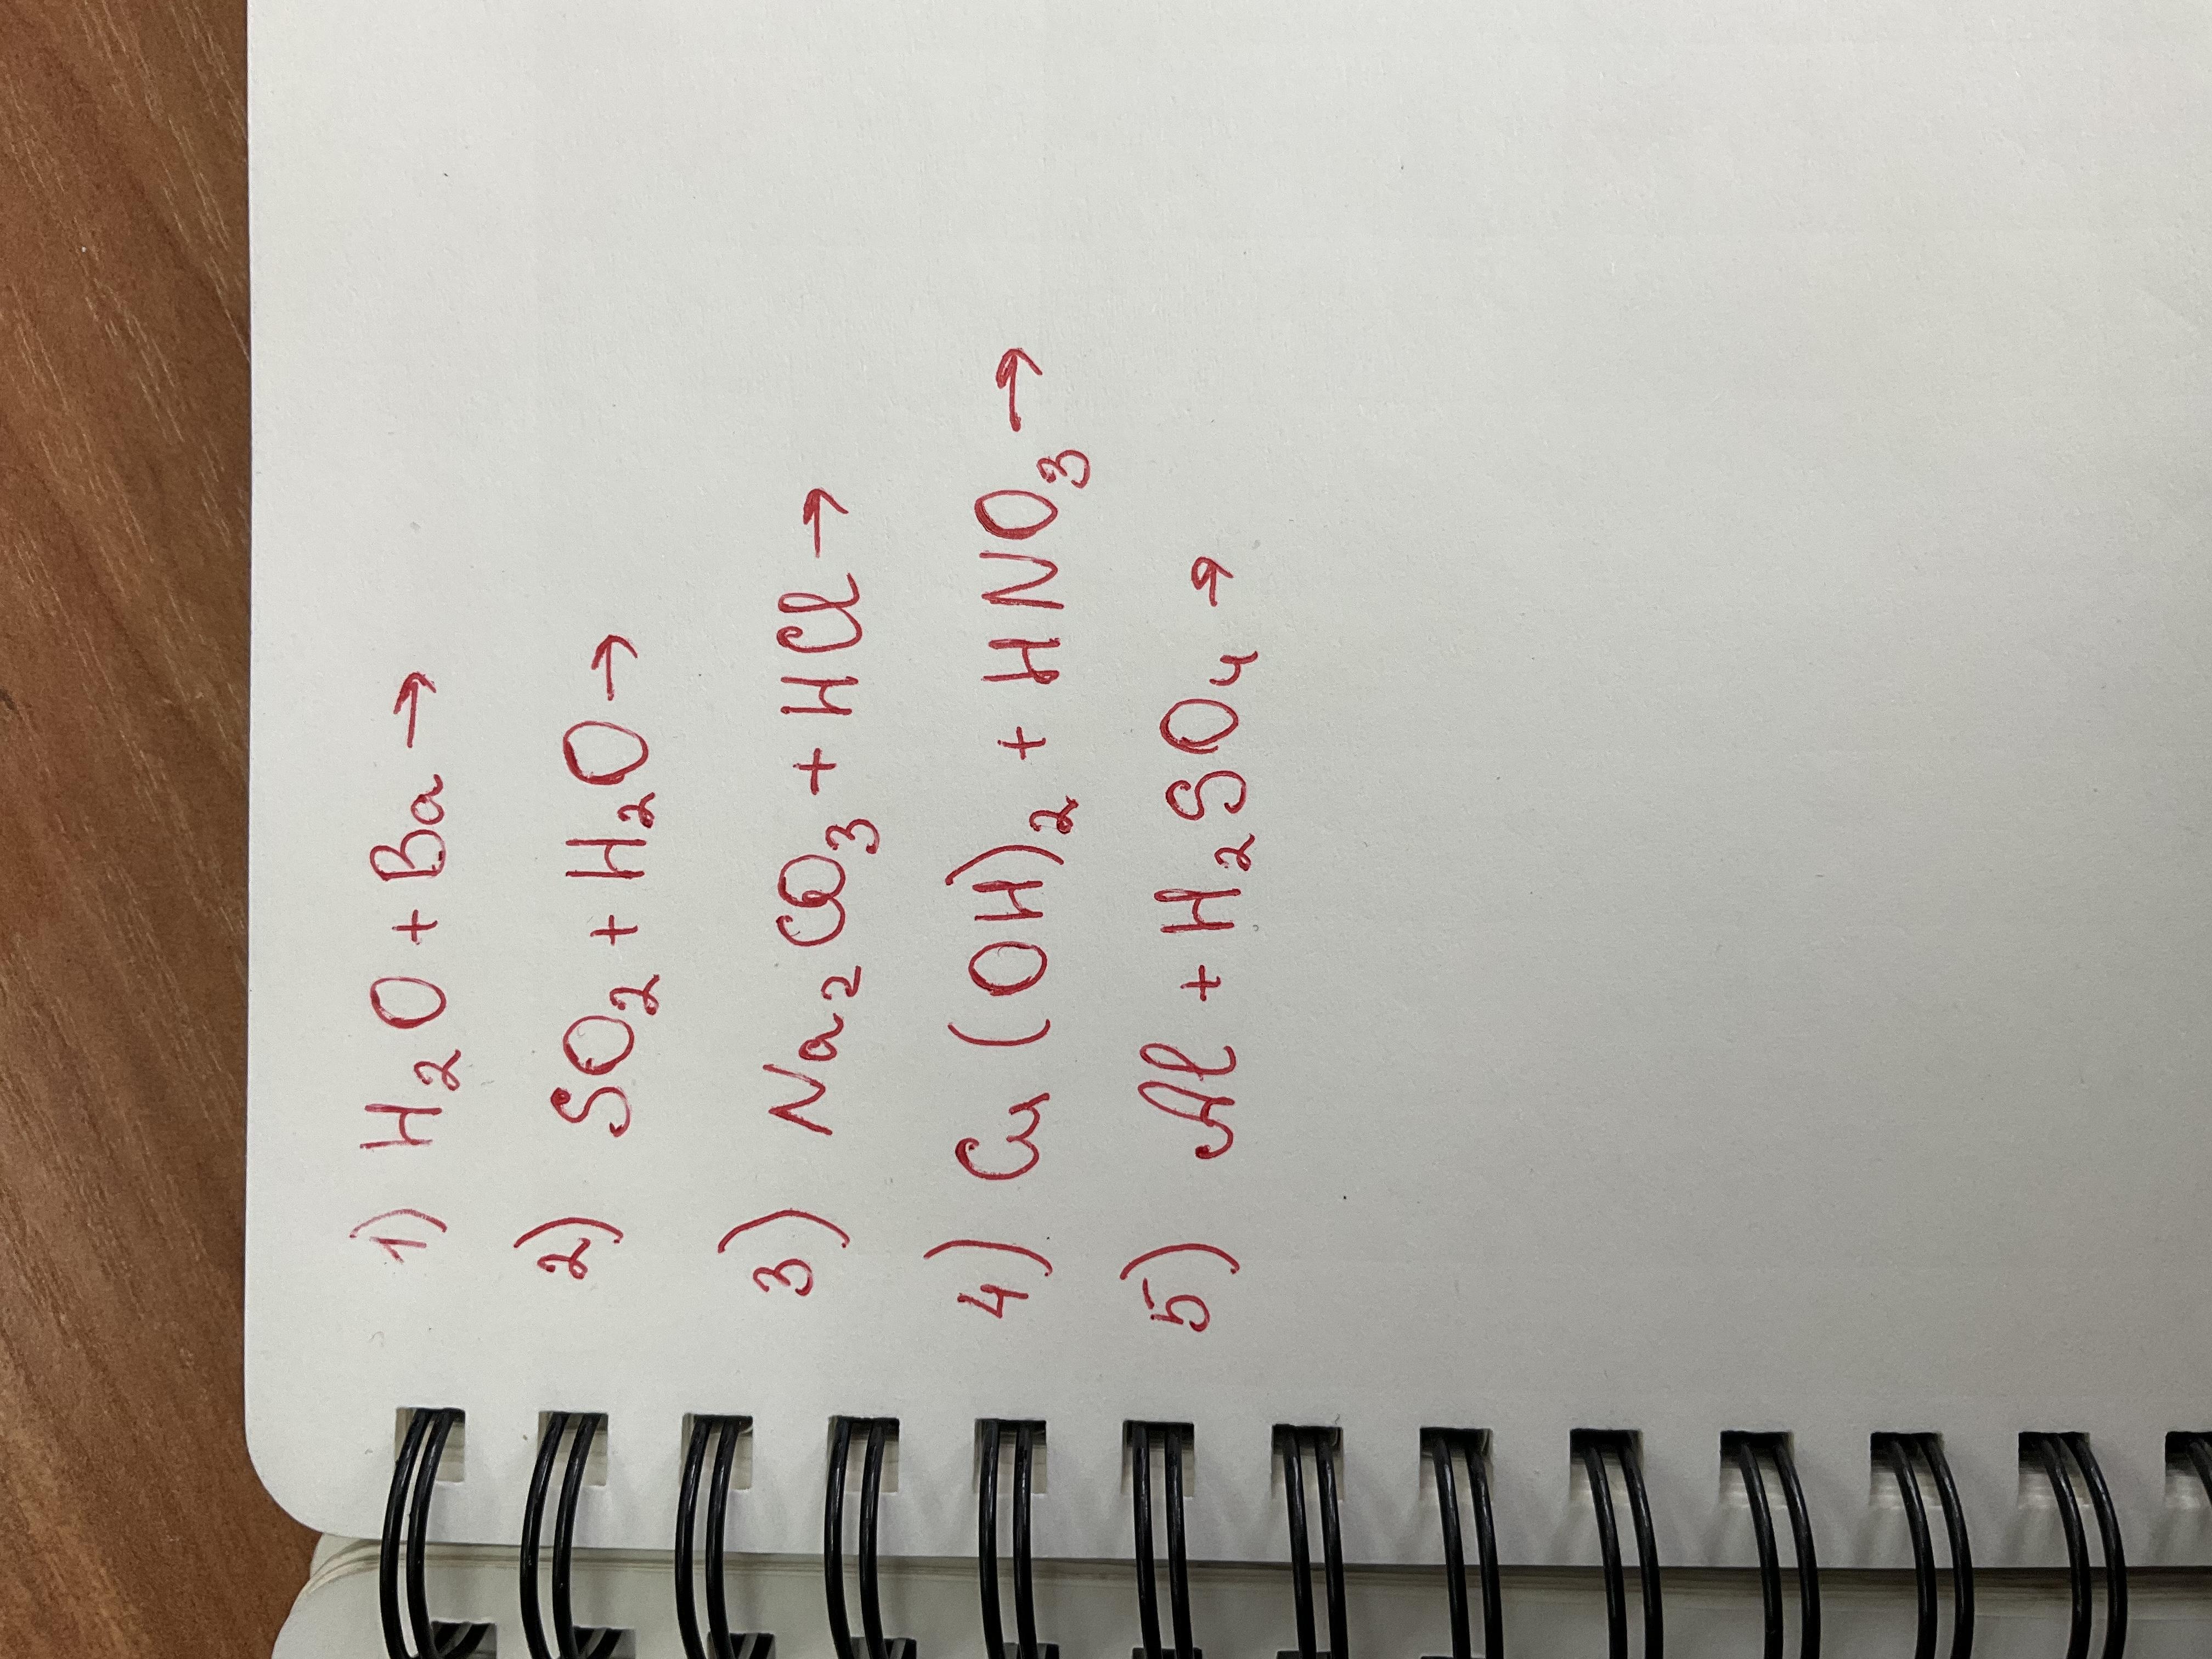 1) H₂O + Ba →
2) SO₂ + H₂O →
3) Na₂CO₃ + HCl →
4) Cu (OH)₂ + HNO₃ →
5) Al + H₂SO₄ →